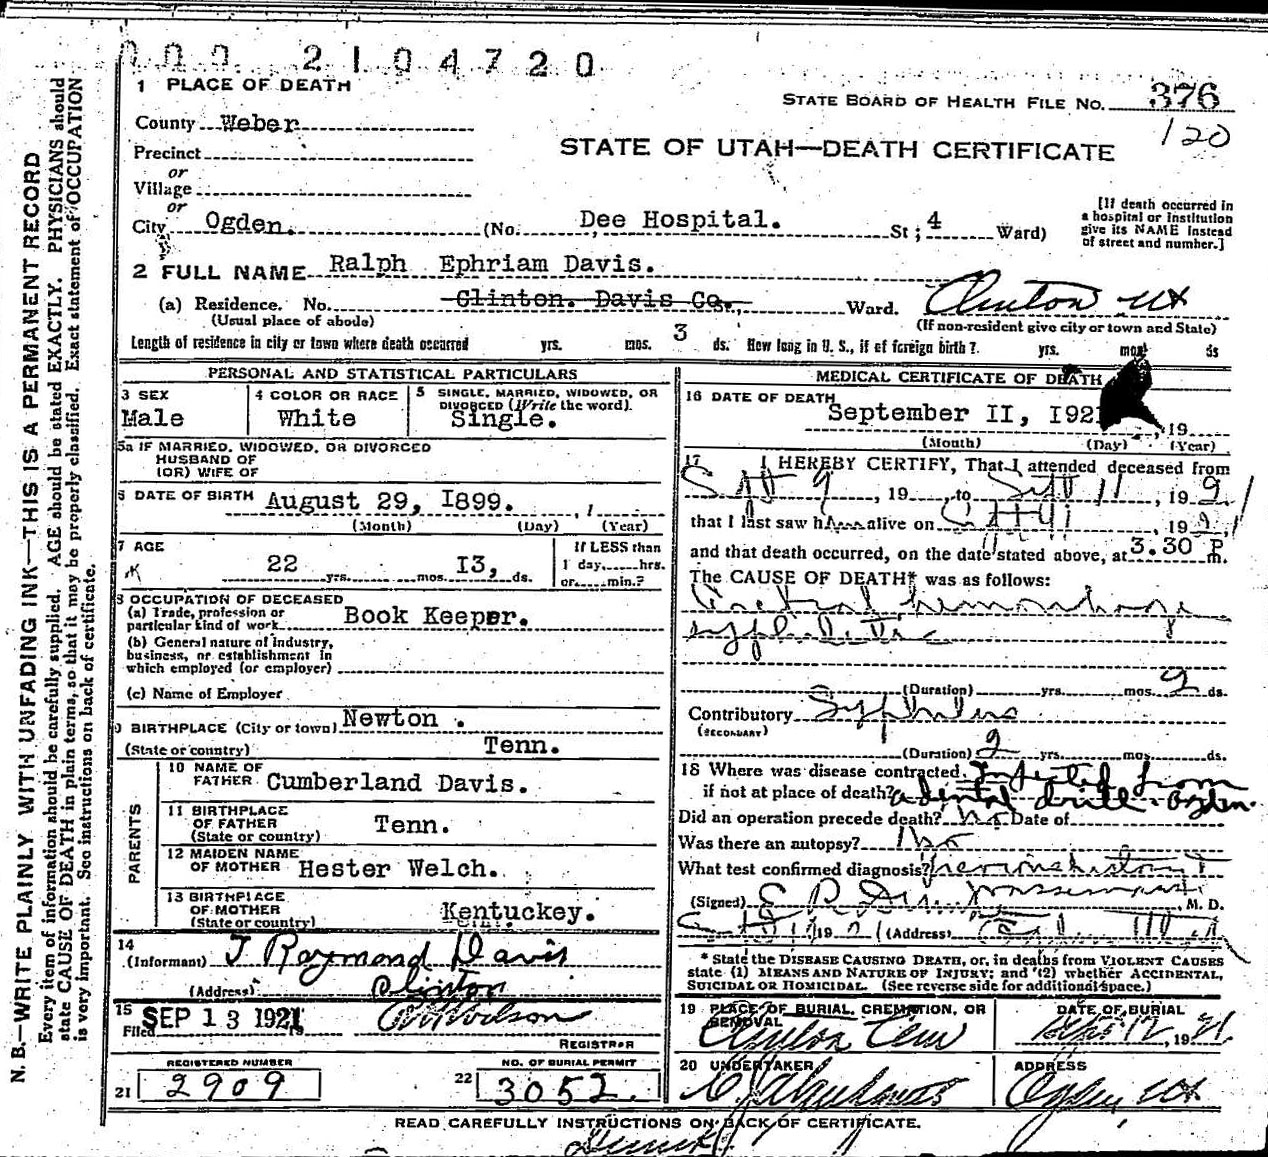 000 2104720
1 PLACE OF DEATH
STATE BOARD OF HEALTH FILE NO. 376
120
County Weber
STATE OF UTAH—DEATH CERTIFICATE
Precinct
or
Village
or
City Ogden. (No. Dee Hospital. St; 4 Ward)
[If death occurred in
a hospital or institution
give its NAME instead
of street and number.]
2 FULL NAME Ralph Ephriam Davis.
(a) Residence. No. Clinton. Davis Co., Ward. Clinton Ut
(Usual place of abode)
(If non-resident give city or town and State)
Length of residence in city or town where death occurred yrs. mos. 3 ds. How long in U. S., if of foreign birth? yrs. mos. ds
PERSONAL AND STATISTICAL PARTICULARS
3 SEX
Male
4 COLOR OR RACE
White
5 SINGLE, MARRIED, WIDOWED, OR
DIVORCED (Write the word).
Single.
5a IF MARRIED, WIDOWED, OR DIVORCED
HUSBAND OF
(OR) WIFE OF
6 DATE OF BIRTH August 29, I899.
(Month) (Day) (Year)
7 AGE
22 yrs. mos. I3, ds.
If LESS than
1 day, hrs.
or min.?
8 OCCUPATION OF DECEASED
(a) Trade, profession or
particular kind of work Book Keeper.
(b) General nature of industry,
business, or establishment in
which employed (or employer)
(c) Name of Employer
9 BIRTHPLACE (City or town) Newton.
(State or country) Tenn.
PARENTS
10 NAME OF
FATHER Cumberland Davis.
11 BIRTHPLACE
OF FATHER
(State or country) Tenn.
12 MAIDEN NAME
OF MOTHER Hester Welch.
13 BIRTHPLACE
OF MOTHER
(State or country) Kentuckey.
14
(Informant) J Raymond Davis
(Address) Clinton
15
Filed SEP 13 1921 Wilson
REGISTRAR
REGISTERED NUMBER
21 2909
NO. OF BURIAL PERMIT
22 3052.
MEDICAL CERTIFICATE OF DEATH
16 DATE OF DEATH
September II, I921 19
(Month) (Day) (Year)
17 I HEREBY CERTIFY, That I attended deceased from
Sept 9, 19 , to Sept 11, 19 21
that I last saw him alive on Sept 11, 19 21
and that death occurred, on the date stated above, at 3.30 P. m.
The CAUSE OF DEATH* was as follows:
hemorrhage
syphilitic
(Duration) yrs. mos. 2 ds.
Contributory Syphilis
(SECONDARY)
(Duration) 2 yrs. mos. ds.
18 Where was disease contracted Infected from
if not at place of death? a dental drill - Ogden.
Did an operation precede death? no Date of
Was there an autopsy? no
What test confirmed diagnosis?
(Signed) E. R. M. D.
19 21 (Address)
* State the DISEASE CAUSING DEATH, or, in deaths from VIOLENT CAUSES
state (1) MEANS AND NATURE OF INJURY; and (2) whether ACCIDENTAL,
SUICIDAL OR HOMICIDAL. (See reverse side for additional space.)
19 PLACE OF BURIAL, CREMATION, OR
REMOVAL
Clinton Cem
DATE OF BURIAL
Sept 12, 1921.
20 UNDERTAKER
ADDRESS
Ogden, Ut
READ CAREFULLY INSTRUCTIONS ON BACK OF CERTIFICATE.
N. B.—WRITE PLAINLY WITH UNFADING INK—THIS IS A PERMANENT RECORD
Every item of information should be carefully supplied. AGE should be stated EXACTLY. PHYSICIANS should
state CAUSE OF DEATH in plain terms, so that it may be properly classified. Exact statement of OCCUPATION
is very important. See instructions on back of certificate.